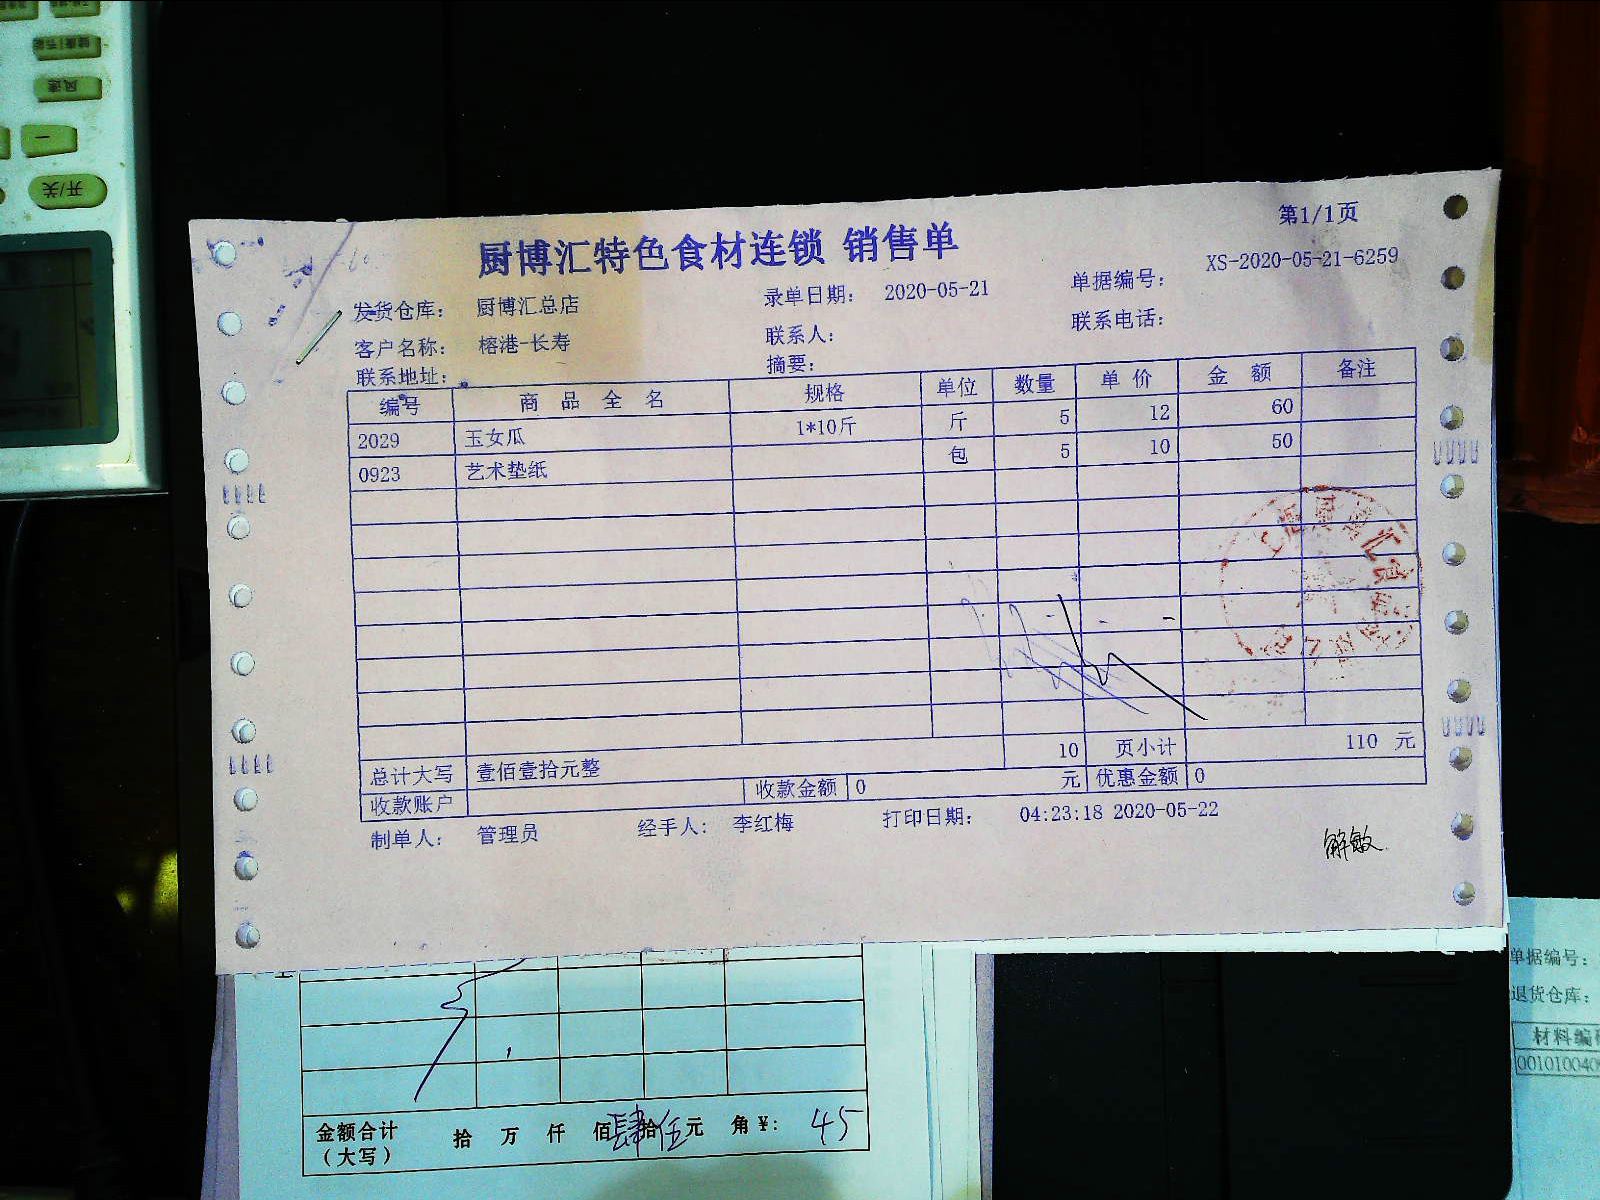 健康/节能
风速
一
开/关
第1/1页
厨博汇特色食材连锁 销售单
发货仓库： 厨博汇总店 录单日期： 2020-05-21 单据编号： XS-2020-05-21-6259
客户名称： 榕港-长寿 联系人： 联系电话：
联系地址： 摘要：
编号 商 品 全 名 规格 单位 数量 单 价 金 额 备注
2029 玉女瓜 1*10斤 斤 5 12 60
0923 艺术垫纸 包 5 10 50
总计大写 壹佰壹拾元整 10 页小计 110 元
收款账户 收款金额 0 元 优惠金额 0
制单人： 管理员 经手人： 李红梅 打印日期： 04:23:18 2020-05-22
解敏
金额合计 （大写） 拾 万 仟 佰 肆 拾 伍 元 角 ¥: 45
单据编号：
退货仓库：
材料编
00101004